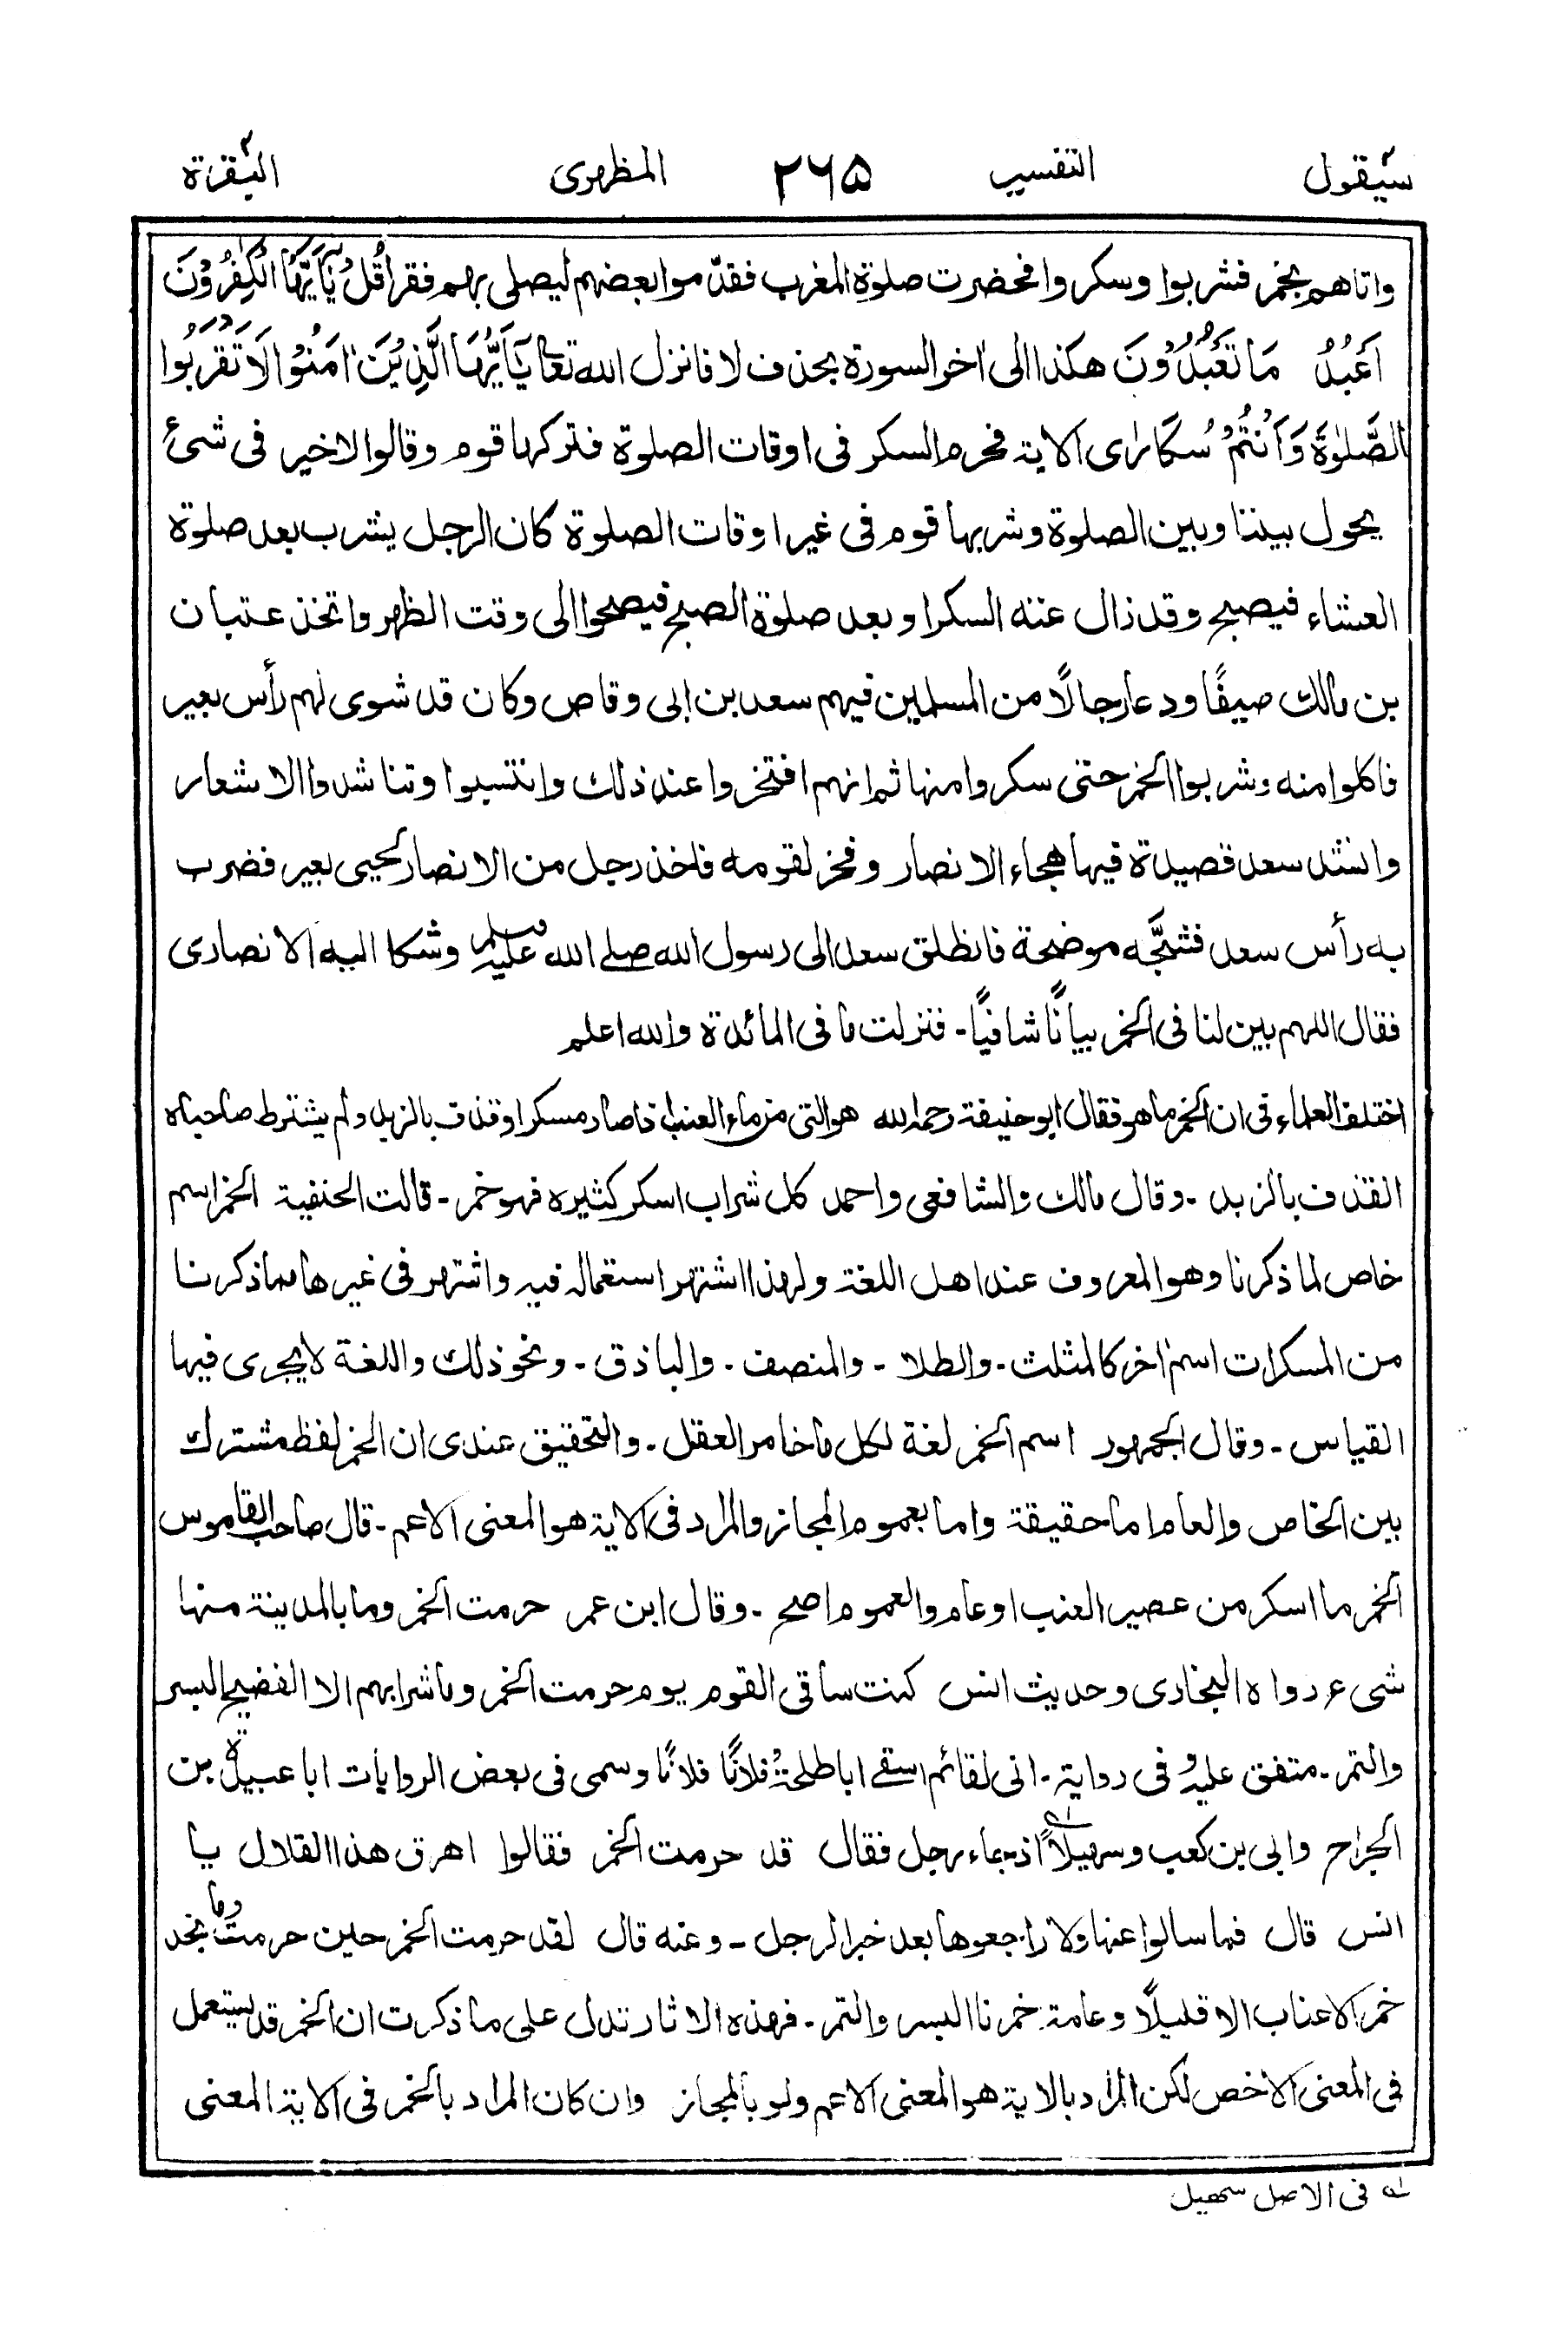 سيقول ٢ التفسير ٢٦٥ المظهرى البقرة ٢
واتاهم بخمر فشربوا وسكروا فحضرت صلوة المغرب فقدّموا بعضهم ليصلى بهم فقرا قُلْ يٰٓاَيُّهَا الْكٰفِرُوْنَ
اَعْبُدُ مَا تَعْبُدُوْنَ هكذا الى اٰخر السورة بحذف لا فانزل الله تعالى يٰٓاَيُّهَا الَّذِيْنَ اٰمَنُوْا لَا تَقْرَبُوا
الصَّلٰوةَ وَاَنْتُمْ سُكَارٰى الاية فحرم السكر فى اوقات الصلوة فتركها قوم وقالوا لا خير فى شئ
يحول بيننا وبين الصلوة وشربها قوم فى غير اوقات الصلوة كان الرجل يشرب بعد صلوة
العشاء فيصبح وقد زال عنه السكر او بعد صلوة الصبح فيصحوا الى وقت الظهر واتخذ عتبان
بن مالك صيفًا ودعا رجالًا من المسلمين فيهم سعد بن ابى وقاص وكان قد شوى لهم رأس بعير
فاكلوا منه وشربوا الخمر حتى سكروا منها ثم انهم افتخروا عند ذلك وانتسبوا وتناشدوا الاشعار
وانشد سعد قصيدة فيها هجاء الانصار وفخر لقومه فاخذ رجل من الانصار لحيى بعير فضرب
به رأس سعد فشجَّه موضحة فانطلق سعد الى رسول الله صلى الله عليه وسلم وشكا اليه الانصارى
فقال اللهم بين لنا فى الخمر بيانًا شافيًا - فنزلت ما فى المائدة والله اعلم
اختلف العلماء فى ان الخمر ما هو فقال ابو حنيفة رحمه الله هو التى من ماء العنب اذا صار مسكرا وقذف بالزبد ولم يشترط صاحباه
القذف بالزبد - وقال مالك والشافعى واحمد كل شراب اسكر كثيره فهو خمر - قالت الحنفية الخمر اسم
خاص لما ذكرنا وهو المعروف عند اهل اللغة ولهذا اشتهر استعماله فيه واشتهر فى غيرها مما ذكرنا
من المسكرات اسم اٰخر كالمثلث - والطلا - والمنصف - والباذق - ونحو ذلك واللغة لا يجرى فيها
القياس - وقال الجمهور اسم الخمر لغة لكل ما خامر العقل - والتحقيق عندى ان الخمر لفظ مشترك
بين الخاص والعام اما حقيقة واما بعموم المجاز والمراد فى الاية هو المعنى الاعم - قال صاحب القاموس
الخمر ما اسكر من عصير العنب او عام والعموم اصح - وقال ابن عمر حرمت الخمر وما بالمدينة منها
شىء رواه البخارى وحديث انس كنت ساقى القوم يوم حرمت الخمر وما شرابهم الا الفضيح البسر
والتمر - متفق عليه وفى رواية - انى لقائم اسقے ابا طلحة وفلانًا فلانًا وسمى فى بعض الروايات ابا عبيدة بن
الجراح وابى بن كعب وسهيلًا ؎ اذ جاء رجل فقال قد حرمت الخمر فقالوا اهرق هذا القلال يا
انس قال فما سالوا عنها ولا راجعوها بعد خبر الرجل - وعنه قال لقد حرمت الخمر حين حرمت وما نجد
خمر الاعناب الا قليلًا وعامة خمرنا البسر والتمر - فهذه الاثار تدل على ما ذكرت ان الخمر قد يستعمل
فى المعنى الاخص لكن المراد بالاية هو المعنى الاعم ولو بالمجاز وان كان المراد بالخمر فى الاية المعنى
؎ فى الاصل سهيل